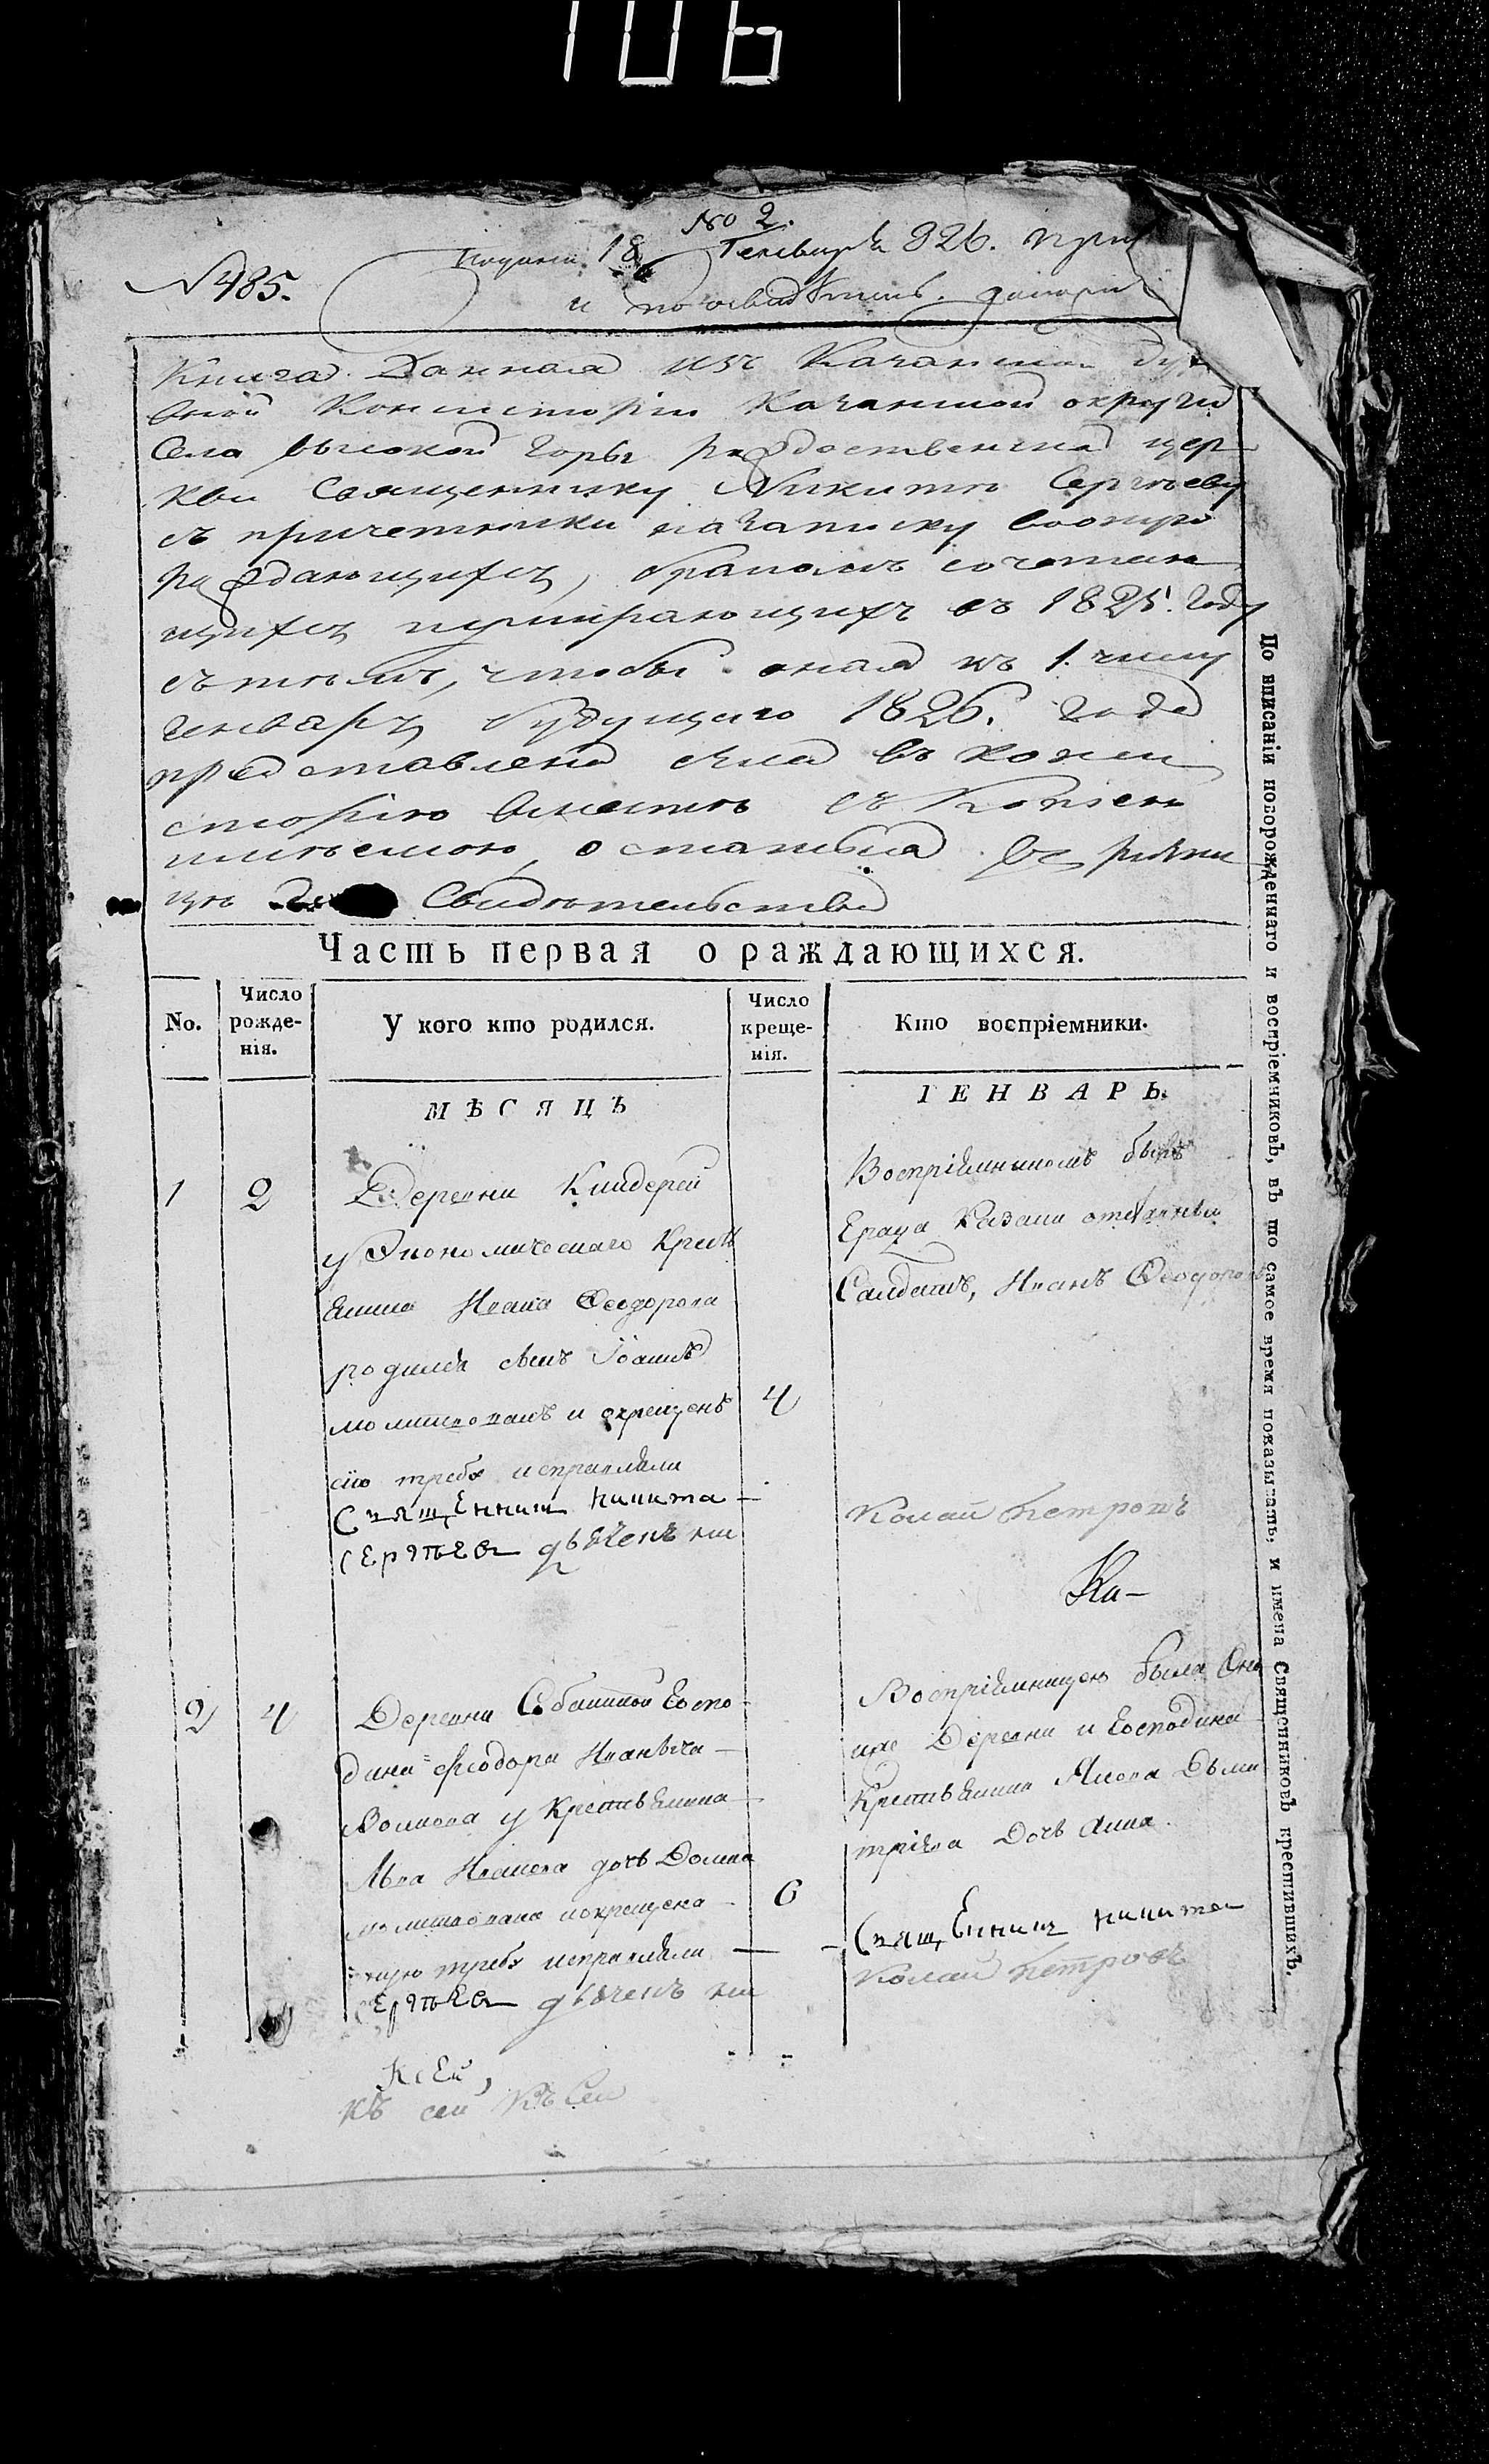 106
No 2.
Подана 18 Генваря 826.
N 485.
и по
Книга Данная изъ Казанской Дух
вной Консисторіи Казанской округи
Села высокой Горы рождественской цер
кви Священнику Никите Сергѣеву
съ причетники на записку воонро
раждающихся, бракомъ сочетаю
щихся иумирающихъ въ 1825. Году
съ тѣмъ, чтобы оная къ 1. числу
генваря будущаго 1826. Года
представлена была въ конси
сторію вместѣ съ Копіею
Свидѣтельства
Часть первая о раждающихся.
No.
Число рожде-нія.
У кого кто родился.
Число креще-нія.
Кто воспріемники.
МѢСЯЦЪ
ГЕНВАРЬ.
1
2
Деревни Киндерей
у Экономическаго Крестъ
янина Ивана Феодорова
родился сынъ Іоаннъ
молитвованъ и окрещенъ
4
сію требу исправляли
Священникъ никита
сергѣевъ дьячекъ ни
Воспріемникомъ былъ
Града Казани отставной
Салдатъ, Иванъ Феодоровъ
колай петровъ
Ка-
2
4
Деревни Собакиной Госпо
дина Феодора Иваныча
Волкова у Крестьянина
Льва Иванова дочь Домна
молитвована иокрещена
6
требу исправляли
сергѣевъ дьячекъ ни
Воспріемницею была Оно
иже Деревни и Господина
Крестьянина Якова Дьми
тріева Дочь Анна.
Священникъ никита
колай петровъ
Ксей,
къ сей Къ Сей
По вписаніи новорожденнаго и воспріемниковъ, въ то самое время показывать, и имена Священниковъ крестившихъ.